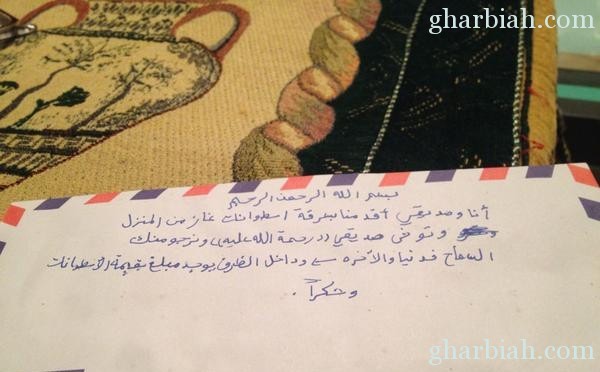 gharbiah.com
بسم الله الرحمن الرحيم
أنا وصديقي أقدمنا بسرقة اسطوانات غاز من المنزل
وتوفى صديقي ((رحمة الله عليه)) ونرجو منك
السماح فدنيا والآخره وداخل الظرف يوجد مبلغ بقيمة الأسطوانات
وشكراً .
gharbiah.com